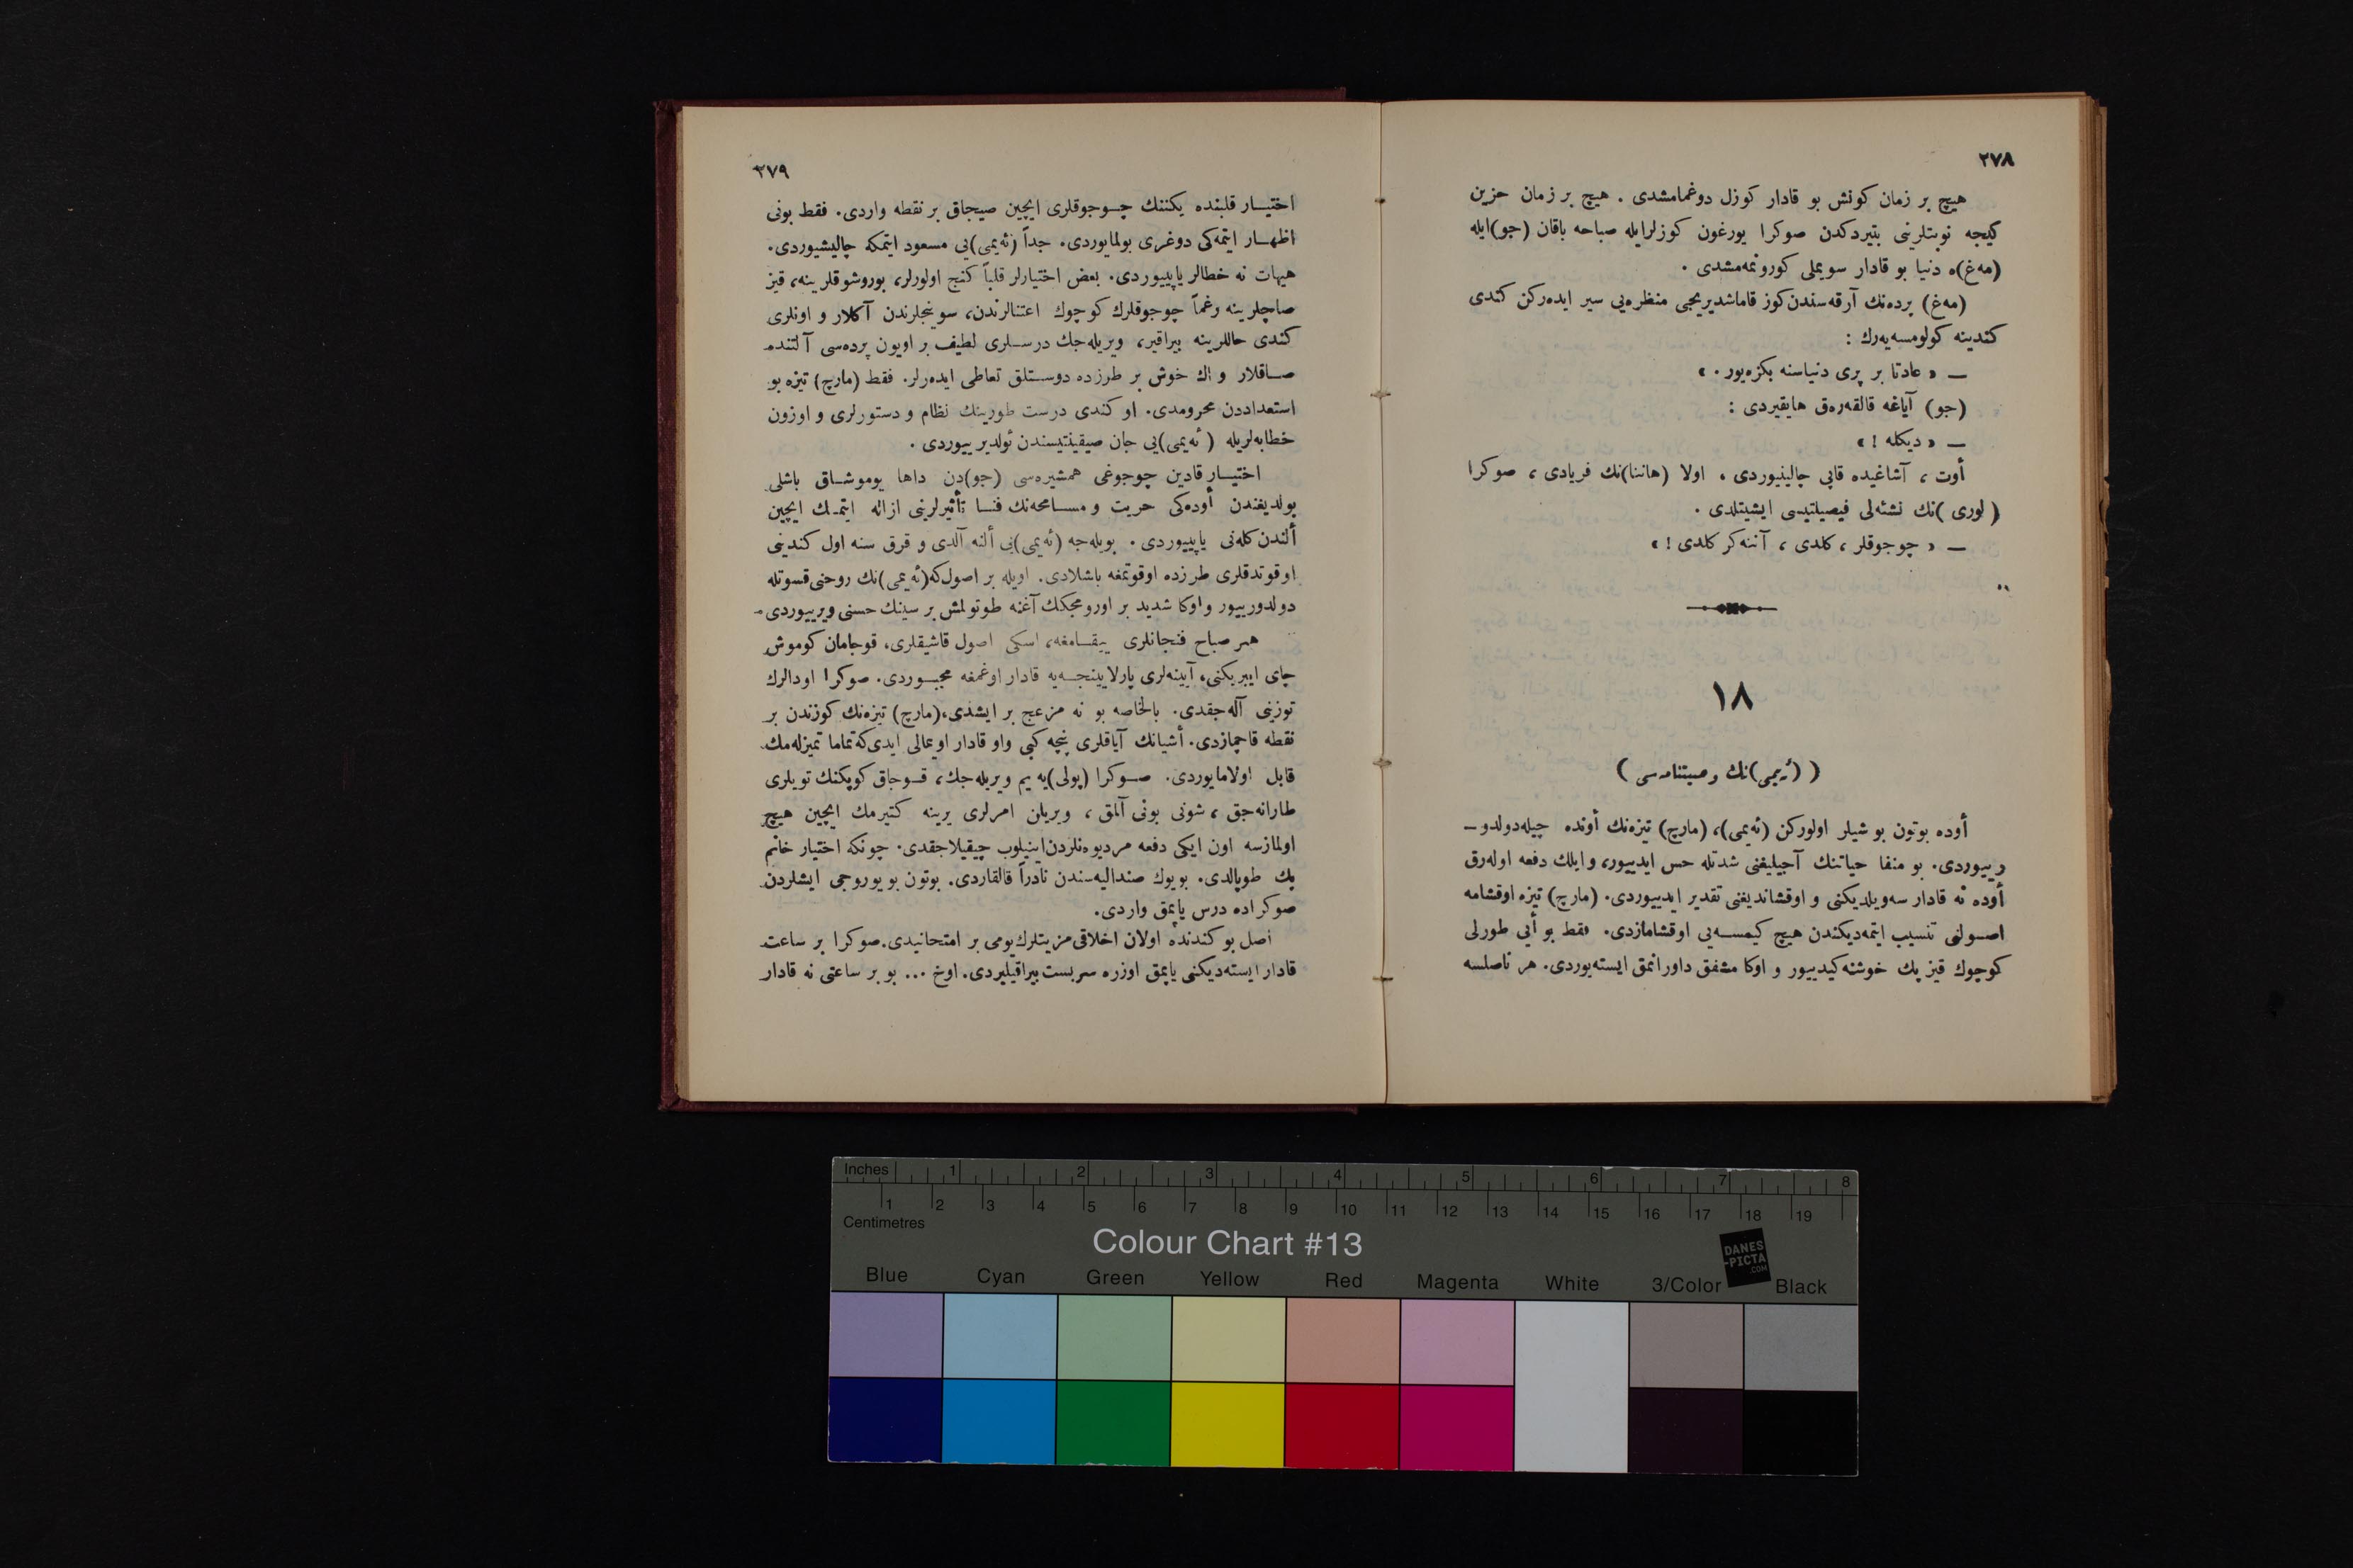 ٢٧٨
هیچ بر زمان كونش بو قادار كوزل دوغمامشدی . هیچ بر زمان حزین
كیجه نوبتلرینی بتیردكدن صوكرا یورغون كوزلرایله صباحه باقان (جو)ایله
(مه‌غ)ه دنیا بو قادار سویملی كورونمه‌مشدی .
(مه‌غ) پرده‌نك آرقه‌سندن كوز قاماشدیریجی منظره‌یی سیر ایده‌ركن كندی
كندینه كولومسه‌یه‌رك :
— « عادتا بر پری دنیاسنه بكزه‌یور . »
(جو) آیاغه قالقه‌ره‌ق هایقیردی :
— « دیكله ! »
أوت ، آشاغیده قاپی چالینیوردی ، اولا (هاننا)نك فریادی ، صوكرا
( لوری )نك نشئه‌لی فیصیلتیسی ایشیتلدی .
— « چوجوقلر ، كلدی ، آننه‌كز كلدی ! »
١٨
( (ئه‌یمی)نك وصیتنامه‌سی )
أوده بوتون بو شیلر اولوركن (ئه‌یمی)، (مارچ) تیزه‌نك أونده چیله‌دولدو—
رییوردی. بو منفا حیاتنك آجیلیغنی شدتله حس ایدییور، وایلك دفعه اوله‌رق
أوده نه قادار سه‌ویلدیكنی و اوقشاندیغنی تقدیر ایدییوردی. (مارچ) تیزه اوقشامه
اصولنی تنسیب ایتمه‌دیكندن هیچ كیمسه‌یی اوقشامازدی. فقط بو أیی طورلی
كوچوك قیز پك خوشنه كیدییور و اوكا مشفق داورانمق ایسته‌یوردی. هر ناصلسه
٢٧٩
اختیار قلبنده یكننك چوجوقلری ایچین صیجاق بر نقطه واردی. فقط بونی
اظهار ایتمه‌كی دوغری بولمایوردی. جداً (ئه‌یمی)یی مسعود ایتمكه چالیشیوردی.
هیهات نه خطالر یاپییوردی. بعض اختیارلر قلباً كنج اولورلر، بوروشوقلرینه، قیر
صاچلرینه رغماً چوجوقلرك كوچوك اعتنالرندن، سوینجلرندن آكلار و اونلری
كندی حاللرینه بیراقیر، ویریله‌جك درسلری لطیف بر اویون پرده‌سی آلتنده
صاقلار و اك خوش بر طرزده دوستلق تعاطی ایده‌رلر. فقط (مارچ) تیزه بو
استعداددن محرومدی. او كندی درست طورینك نظام و دستورلری و اوزون
خطابه‌لریله ( ئه‌یمی)یی جان صیقینتیسندن ئولدیرییوردی .
اختیار قادین چوجوغی همشیره‌سی (جو)دن داها یوموشاق باشلی
بولدیغندن أوده‌كی حریت و مسامحه‌نك فنا تأثیرلرینی ازاله ایتمك ایچین
ألندن كله‌نی یاپییوردی . بویله‌جه (ئه‌یمی)یی ألنه آلدی و قرق سنه اول كندینی
اوقوتدقلری طرزده اوقوتمغه باشلادی. اویله بر اصول‌كه(ئه‌یمی)نك روحنی قسوتله
دولدورییور واوكا شدید بر اورومجكك آغنه طوتولمش بر سینك حسنی ویرییوردی.
هر صباح فنجانلری ییقامغه، اسكی اصول قاشیقلری، قوجامان كوموش
چای ایبریكنی، آیینه‌لری پارلایینجه‌یه قادار اوغمغه مجبوردی. صوكرا اودالرك
توزینی آله‌جقدی. بالخاصه بو نه مزعج بر ایشدی،(مارچ) تیزه‌نك كوزندن بر
نقطه قاچمازدی. أشیانك آیاقلری پنچه كبی واو قادار اویمالی ایدی‌كه تماما تمیزله‌مك
قابل اولامایوردی. صوكرا (پولی)یه یم ویریله‌جك، قوجاق كوپكنك تویلری
طارانه‌جق ، شونی بونی آلمق ، ویریلن امرلری یرینه كتیرمك ایچین هیچ
اولمازسه اون ایكی دفعه مردیوه‌نلردن‌اینیلوب چیقیلاجقدی. چونكه اختیار خانم
پك طوپالدی. بویوك صندالیه‌سندن نادراً قالقاردی. بوتون بو یوروجی ایشلردن
صوكراده درس یاپمق واردی.
أصل بو كندنده اولان اخلاقی مزیتلرك یومی بر امتحانیدی. صوكرا بر ساعت
قادار ایسته‌دیكنی یاپمق اوزره سربست بیراقیلیردی. اوخ ... بو بر ساعتی نه قادار
Inches 1 2 3 4 5 6 7 8
1 2 3 4 5 6 7 8 9 10 11 12 13 14 15 16 17 18 19
Centimetres
Colour Chart #13
DANES
-PICTA
.COM
Blue Cyan Green Yellow Red Magenta White 3/Color Black